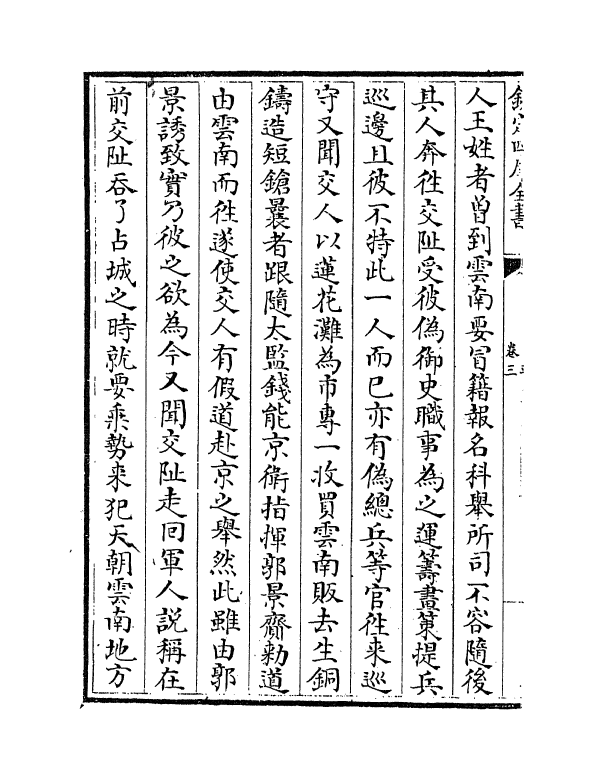 欽定四庫全書
卷三
人王姓者曾到雲南要冒籍報名科舉所司不容隨後
其人奔徃交阯受彼偽御史職事為之運籌畫策提兵
巡邊且彼不特此一人而已亦有偽總兵等官徃來巡
守又聞交人以蓮花灘為市專一收買雲南販去生銅
鑄造短鎗曩者跟隨太監錢能京衛指揮郭景齎勅道
由雲南而徃遂使交人有假道赴京之舉然此雖由郭
景誘致實乃彼之欲為今又聞交阯走回軍人說稱在
前交阯吞了占城之時就要乘勢来犯天朝雲南地方